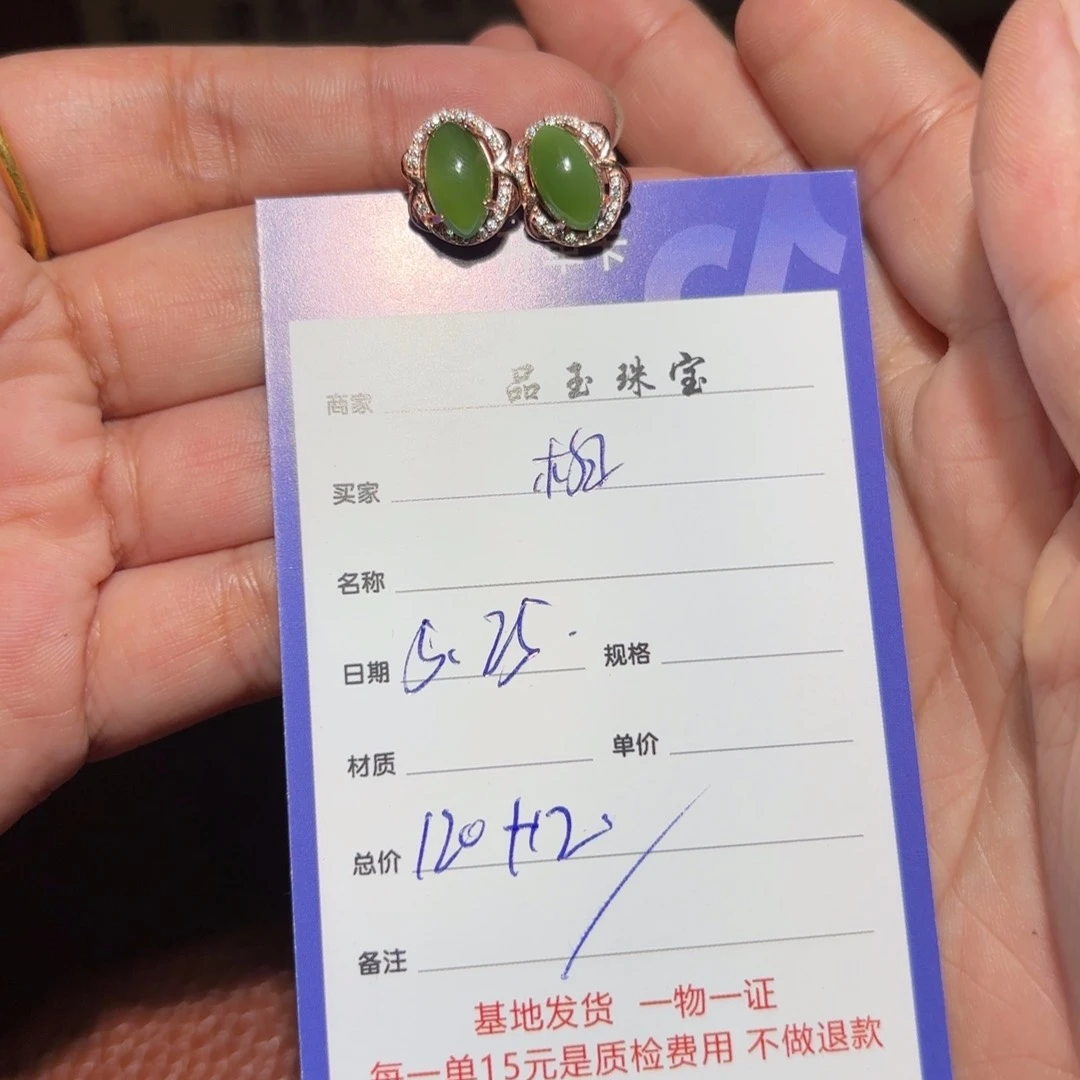 商家 品玉珠宝
买家
名称
日期 5.25.
规格
材质
单价
总价 120+120
备注
基地发货 一物一证
每一单15元是质检费用 不做退款